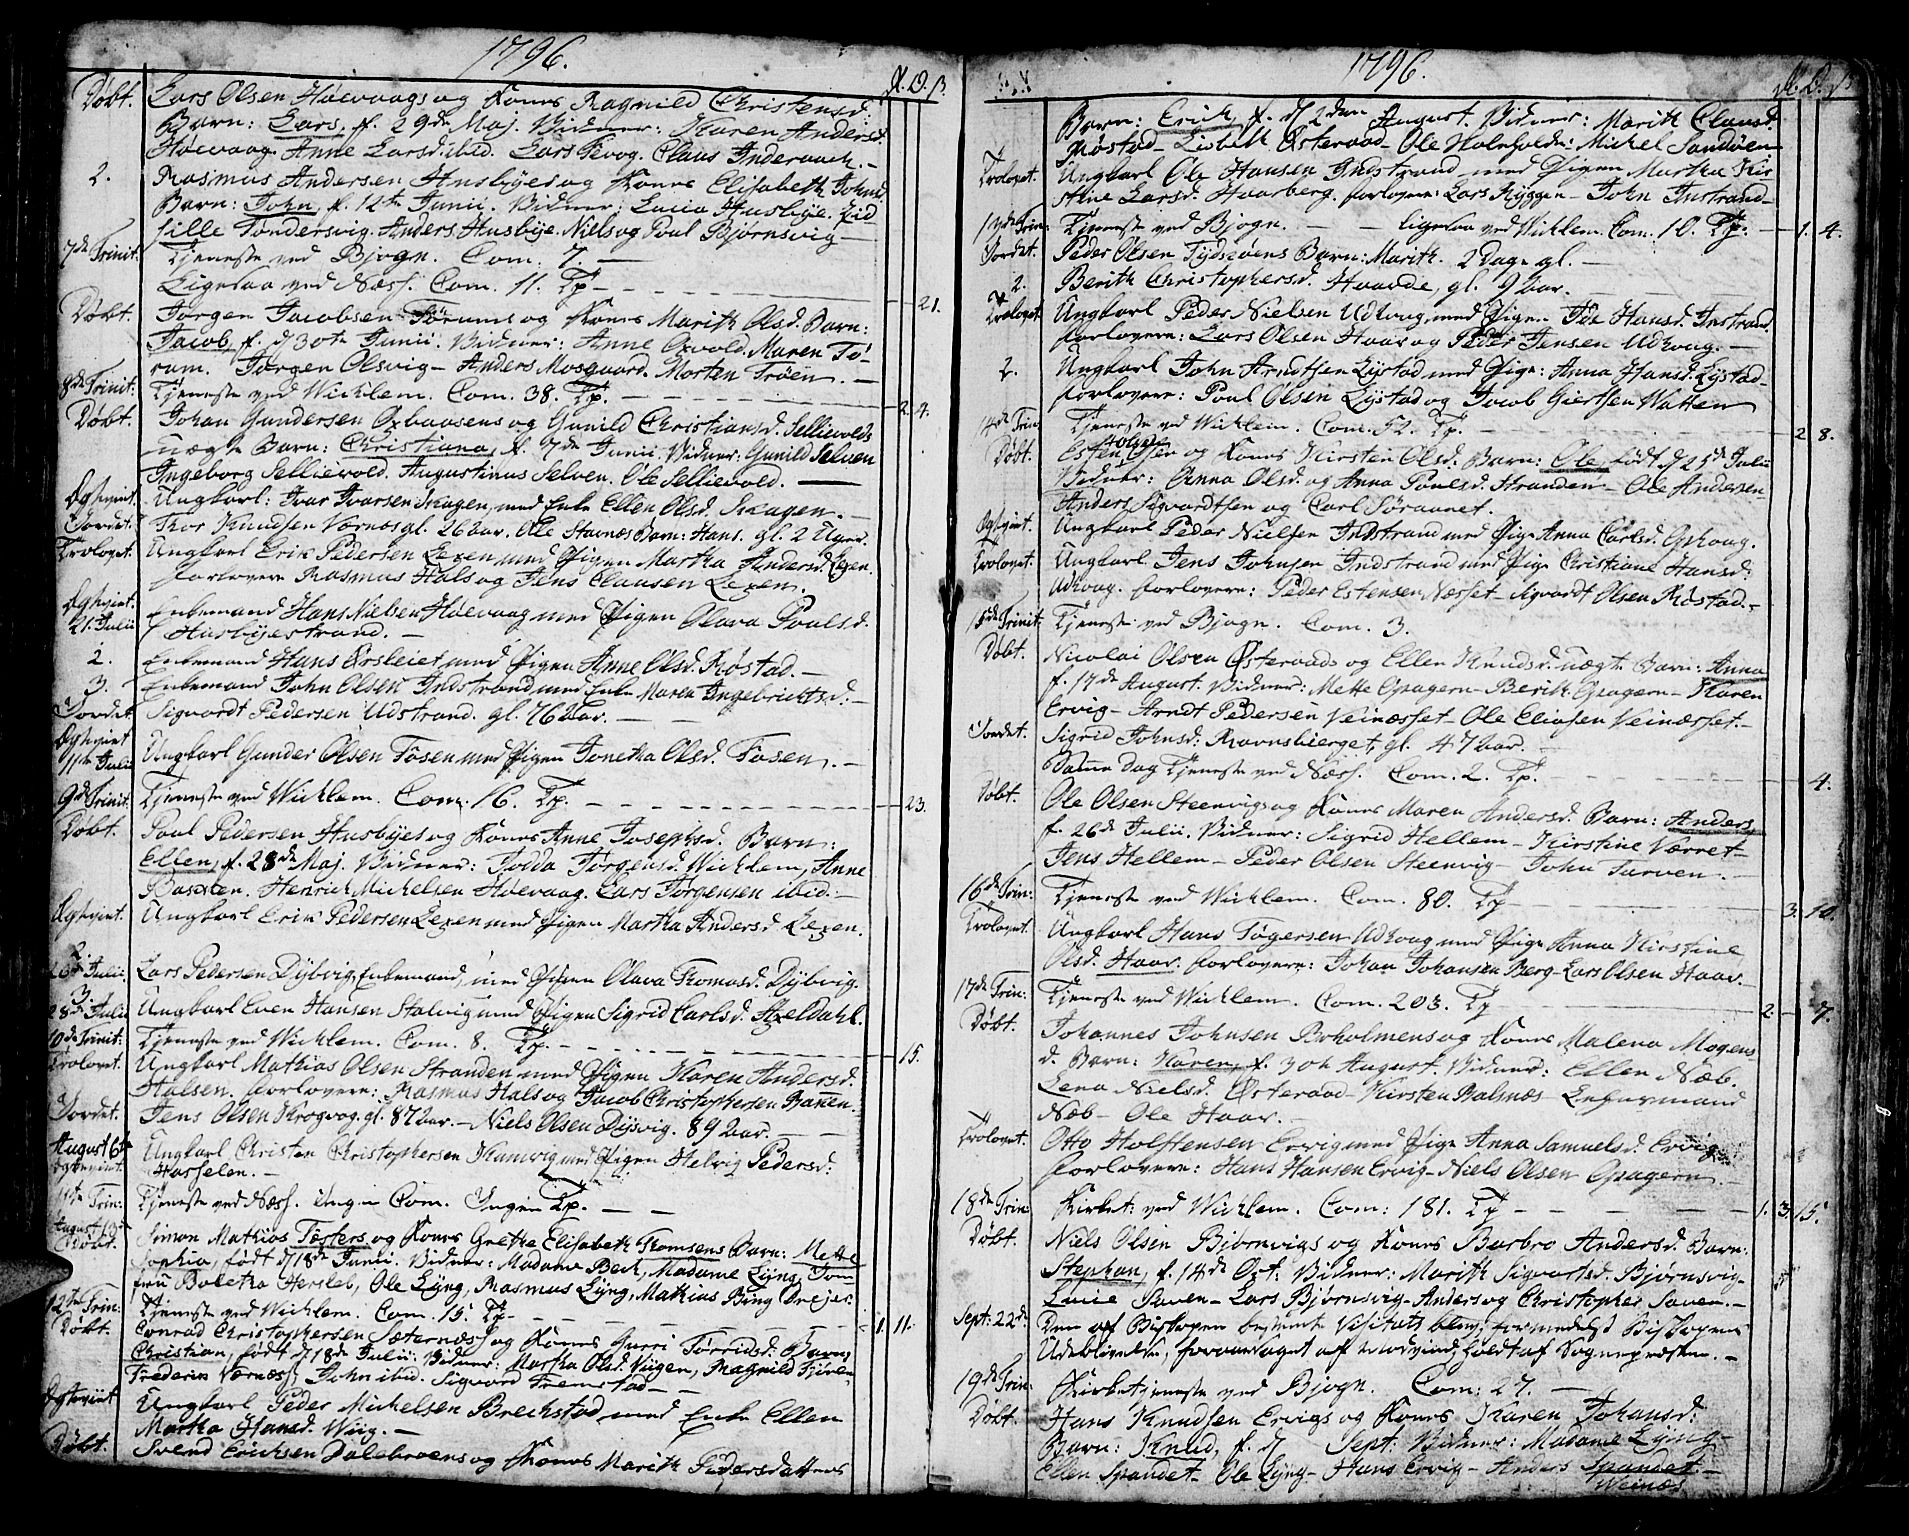 1796.
Døbt. Lars Olsen Høevaags og Kones Ragnild Christensd:
Barn: Lars, f. 29de Maj. Vidner: Karen Andersd.
Høevaag. Anne Larsd. ibid. Lars Claus
2. Rasmus Andersen Husbyes og Kones Elisabeth Johnsd.
Barn: John, f. 12te Junii. Vidner: Lucia Husbye.
sille Tøndersvig. Anders Husbye. Niels og Poul Bjørnsvig
7de Trinit. Tjeneste ved Bjogn. Com. 7. —
Ligesaa ved Næss. Com. 11. Tp — 21.
Døbt. Jørgen Jacobsen Tørums og Kones Marith Olsd. Barn:
Jacob, f. d 30te Junii. Vidner: Anne Oxvold. Maren Tø-
rum. Jørgen Olsvig — Anders Mosgaard. Morten Trøen. —
8de Trinit. Tjeneste ved Wicklem. Com. 38. Tp. — 2. 4.
Døbt. Johan Gundersen Oxbaasens og Gunild Christiansd. Sellievolds
uægte Barn: Christiana, f. 7de Junii. Vidner: Gunild Selven
Ingeborg Sellievold. Augustinus Selven. Ole Sellievold. —
Ægteviet. Ungkarl: Ivar Ivarsen Skagen, med Enke Ellen Olsd. Skagen. —
Jordet. Thor Knudsen Værnæs gl. 26 aar. Ole Stavnæs Barn: Hans. gl. 2 Uger.
Trolovet. Ungkarl Erik Pedersen Lexen med Pigen Martha Andersd. Lexen.
forlovere Rasmus Hals og Jens Clausen Lexen.
Ægteviet. 21. Julii Enkemand Hans Nielsen Høevaag med Pigen Olava Poulsd.
Husbyestrand. —
2. Enkemand Hans Ørsleiet med Pigen Anne Olsd. Røstad. —
3. Enkemand John Olsen Indstrand med Enke Maren Ingebrichtsd: —
Jordet Sigvardt Pedersen Udstrand. gl. 76 aar. —
Ægteviet 11te Julii Ungkarl Gunder Olsen Fosen med Pigen Jonetha Olsd. Fosen. —
9de Trinit. Tjeneste ved Wicklem. Com. 16. Tp. — 23.
Døbt. Poul Pedersen Husbyes og Kones Anne Josephsd. Barn:
Ellen, f. 28de Maj. Vidner: Jørgensd. Wicklem, Anne
Henrich Michelsen Høevaag. Lars Jørgensen ibid: —
Ægteviet. Ungkarl Erik Pedersen Lexen med Pigen Martha Andersd Lexen.
2. Julii Lars Pedersen Dybvig, Enkemand, med Pigen Olava Thomasd. Dybvig.
3. 28de Julii Ungkarl Even Hansen Stalvig med Pigen Sigrid Carlsd. Axeldahl.
10de Trinit: Tjeneste ved Wicklem. Com. 8. Tp. — 15.
Trolovet. Ungkarl Mathias Olsen Stranden med Pigen Karen Andersd.
Halsen. forlovere: Rasmus Hals og Jacob Christophersen
Jordet. Jens Olsen Krogvog. gl. 87 aar. — Niels Olsen Dysvig. 89 aar.
August 6te Ægteviet. Ungkarl Christen Christophersen Kamvig med Pigen Helvig Pedersd:
Hasselen. —
11te Trin: Tjeneste ved Næss. Ingen Com. Ingen Tp. —
August 13de Døbt. Simon Mathias Fosters og Kones Grethe Elisabeth Thomsens Barn: Mette
Sophia, født d 18de Junii. Vidner: Madame Beck, Madame Lyng, Jom
fru Boletha Hersleb, Ole Lyng, Rasmus Lyng, Mathias Bing Drejer.
12te Trin: Tjeneste ved Wicklem. Com. 15. Tp — 1. 11.
Døbt. Conrad Christophersen Sæternæs og Kones Gurri Torridsd: Barn:
Christian, født d 18de Julii: Vidner: Martha Olsd. Viigen, Magnild
Frederik Værnæs, John ibid. Sigvard Fremstad —
Ægteviet Ungkarl Peder Michelsen Brechstad med Enke Ellen
Martha Hansd. Wiig. —
Døbt. Svend Erichsen Dalebroens og Kones Marith Pedersdatters
1796.
Barn: Erich, f. d 2den August. Vidner: Marith Clausd.
Røstad — Lisbeth Østeraad — Ole Holmholdt: Michel Sandøen
Trolovet. Ungkarl Ole Hansen Indstrand med Pigen Martha Kir-
stine Larsd. Haarberg. forlovere: Lars Ryggen — John Instrand —
13de Trin: Tjeneste ved Bjogn. — — ligesaa ved Wicklem. Com. 10. Tp. — 1. 4.
Jordet. Peder Olsen Tydsøens Barn: Marith. 2 Dage gl. —
2. Berith Christophersd. Haande, gl. 9 aar.
Trolovet Ungkarl Peder Nielsen Udhaug, med Pigen Ide Hansd. Instrand,
forlovere: Lars Olsen Haar og Peder Jensen Udhaug. —
2. Ungkarl John Arndtsen Lystad med Pige: Anna Hansd. Lystad —
forlovere: Poul Olsen Lystad og Jacob Giertsen Watten
14de Trin Tjeneste ved Wicklem. Com. 52. Tp. — 2 8.
Døbt. Esten Olsen og Kones Kirsten Olsd. Barn: Ole født d 25de Julii
Vidner: Anna Olsd. og Anna Povelsd. Stranden — Ole Andersen
Anders Sigvardtsen og Carl Søraunet.
Ægteviet. Ungkarl Peder Nielsen Indstrand med Pige Anna Carlsd. Ophaug.
Trolovet. Ungkarl Jens Johnsen Indstrand med Pige Christiane Hansd:
Udhaug. forlovere: Peder Estensen Næsset — Sigvardt Olsen Røstad. —
15de Trinit. Tjeneste ved Bjogn. Com. 3.
Døbt. Nicolai Olsen Østeraads og Ellen Knudsd. uægte Barn: Anna
f. 17de August. Vidner: Mette Opagern — Berith Opagern — Karen
Ervig — Arndt Pedersen Veinæsset — Ole Eliasen Veinæsset —
Jordet. Sigrid Johnsd: Ravnsbierget gl. 47 aar. —
Samme Dag Tjeneste ved Næss. Com. 2. Tp. — 4.
Døbt. Ole Olsen Steenvigs og Kones Maren Andersd. Barn: Anders,
f. 26de Julii. Vidner: Sigrid Hellem — Kirstine Værret —
Jens Hellem — Peder Olsen Steenvig — John Tarven. —
16de Trin: Tjeneste ved Wicklem. Com. 80. Tp — 3. 10.
Trolovet. Ungkarl Hans Tøgersen Udhaug med Pige Anna Kirstine
Olsd. Haar. forlovere: Johan Johansen Berg — Lars Olsen Haar.
17de Trin: Tjeneste ved Wicklem. Com. 203. Tp — 2. — 7.
Døbt. Johannes Johnsen Brholmens og Kones Malena Mogens
d. Barn: Karen, f. 30te August. Vidner: Ellen Næb.
Lena Nielsd. Østeraad — Kirsten Balsnæs — Legarsmand
Næb — Ole Haar. —
Trolovet. Otto Holstensen Ervig med Pige Anna Samuelsd. Ervig
forlovere: Hans Hansen Ervig — Niels Olsen Opagern —
18de Trin: Kirket: ved Wicklem. Com: 181. Tp — 1. 3. 15.
Døbt. Niels Olsen Bjørnvigs og Kones Barbro Andersd. Barn:
Stephan, f. 14de Oct: Vidner: Marith Sigvartsd. Bjørnsvig —
Lucie Saven — Lars Bjørnsvig — Anders og Christopher Saven. —
Sept: 22de: Den af Biskopen bestemte Visitats blev, formedelst Biskopens
Udeblivelse, foraarsaget af modvind, holdt af Sognepræsten. —
19de Trin: Kirketjeneste ved Bjogn. Com: 27. —
Døbt. Hans Knudsen Ervigs og Kones Karen Johansd:
Barn: Knud, f. d Sept: Vidner: Madame Lyng —
Ellen Spandet — Ole Lyng — Hans Ervig — Anders Spandet. —
Weinæs